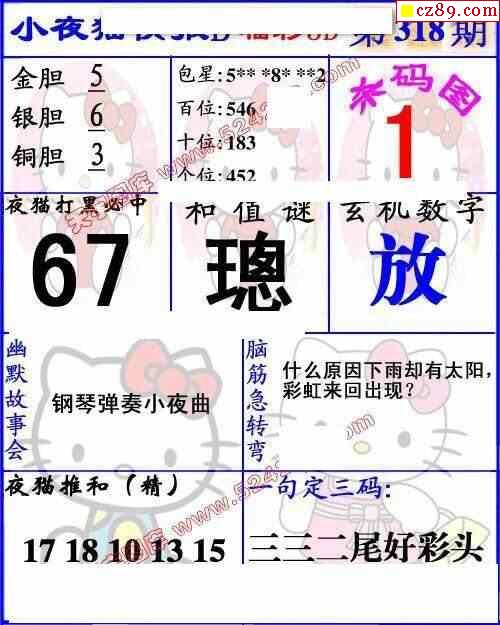 cz89.com
小夜猫
福彩3D
第318期
金胆 5
银胆 6
铜胆 3
包星:5** *8* **2
百位:546
十位:183
个位:452
杀码图
1
夜猫打黑必中
67
和值谜
璁
玄机数字
放
幽默故事会
钢琴弹奏小夜曲
脑筋急转弯
什么原因下雨却有太阳,
彩虹来回出现?
夜猫推和(精)
17 18 10 13 15
一句定三码:
三三二尾好彩头